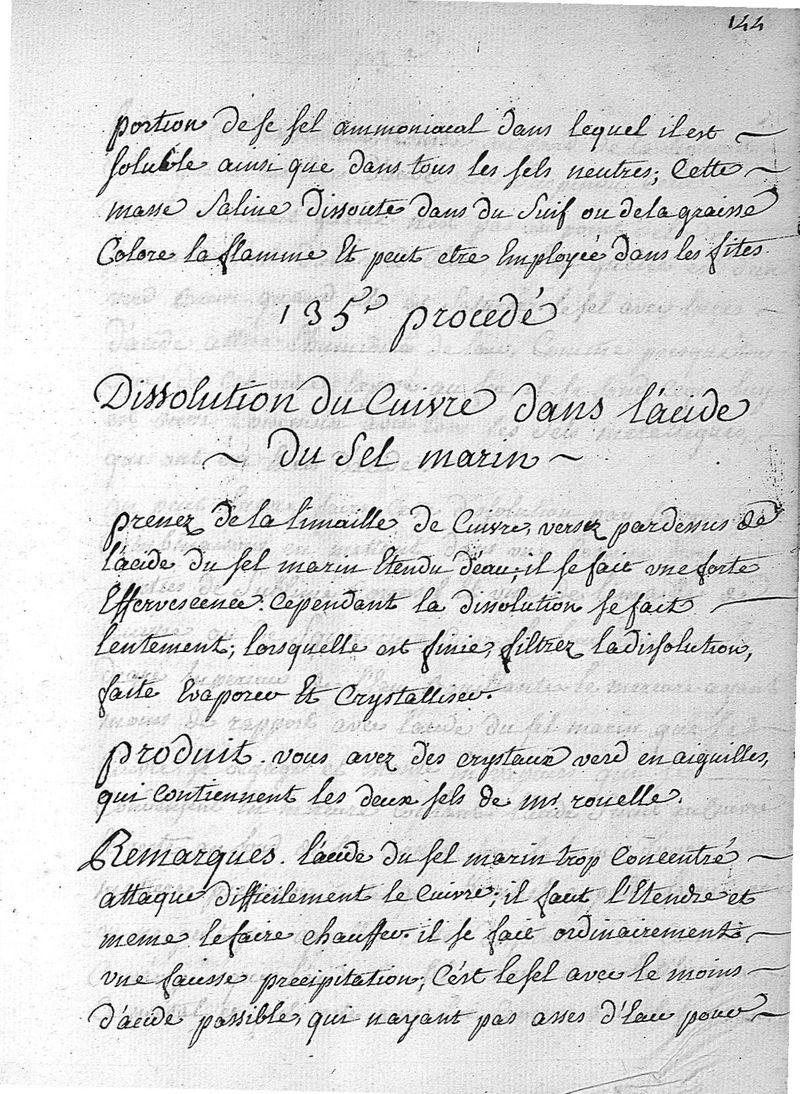 144
portion de ce sel ammoniacal dans lequel il est
soluble ainsi que dans tous les sels neutres; Cette
masse Saline dissoute dans du Suif ou de la graisse
Colore la flamme Et peut etre Employée dans les fêtes
135e procedé
Dissolution du Cuivre dans l'acide
du Sel marin
prenez de la limaille de Cuivre, versez pardessus de
l'acide du sel marin Etendu d'eau; il se fait une forte
Effervescence. Cependant la dissolution se fait
lentement; lorsquelle est finie, filtrez la dissolution,
faite Evaporer Et Crystalliser.
produit. vous avez des crystaux verd en aiguilles,
qui Contiennent les deux sels de mr. rouelle.
Remarques. l'acide du sel marin trop Concentré
attaque difficilement le Cuivre; il faut l'Etendre et
meme le faire chauffer. il se fait ordinairement
une fausse precipitation, C'est le sel avec le moins
d'acide possible, qui nayant pas asses d'Eau pour